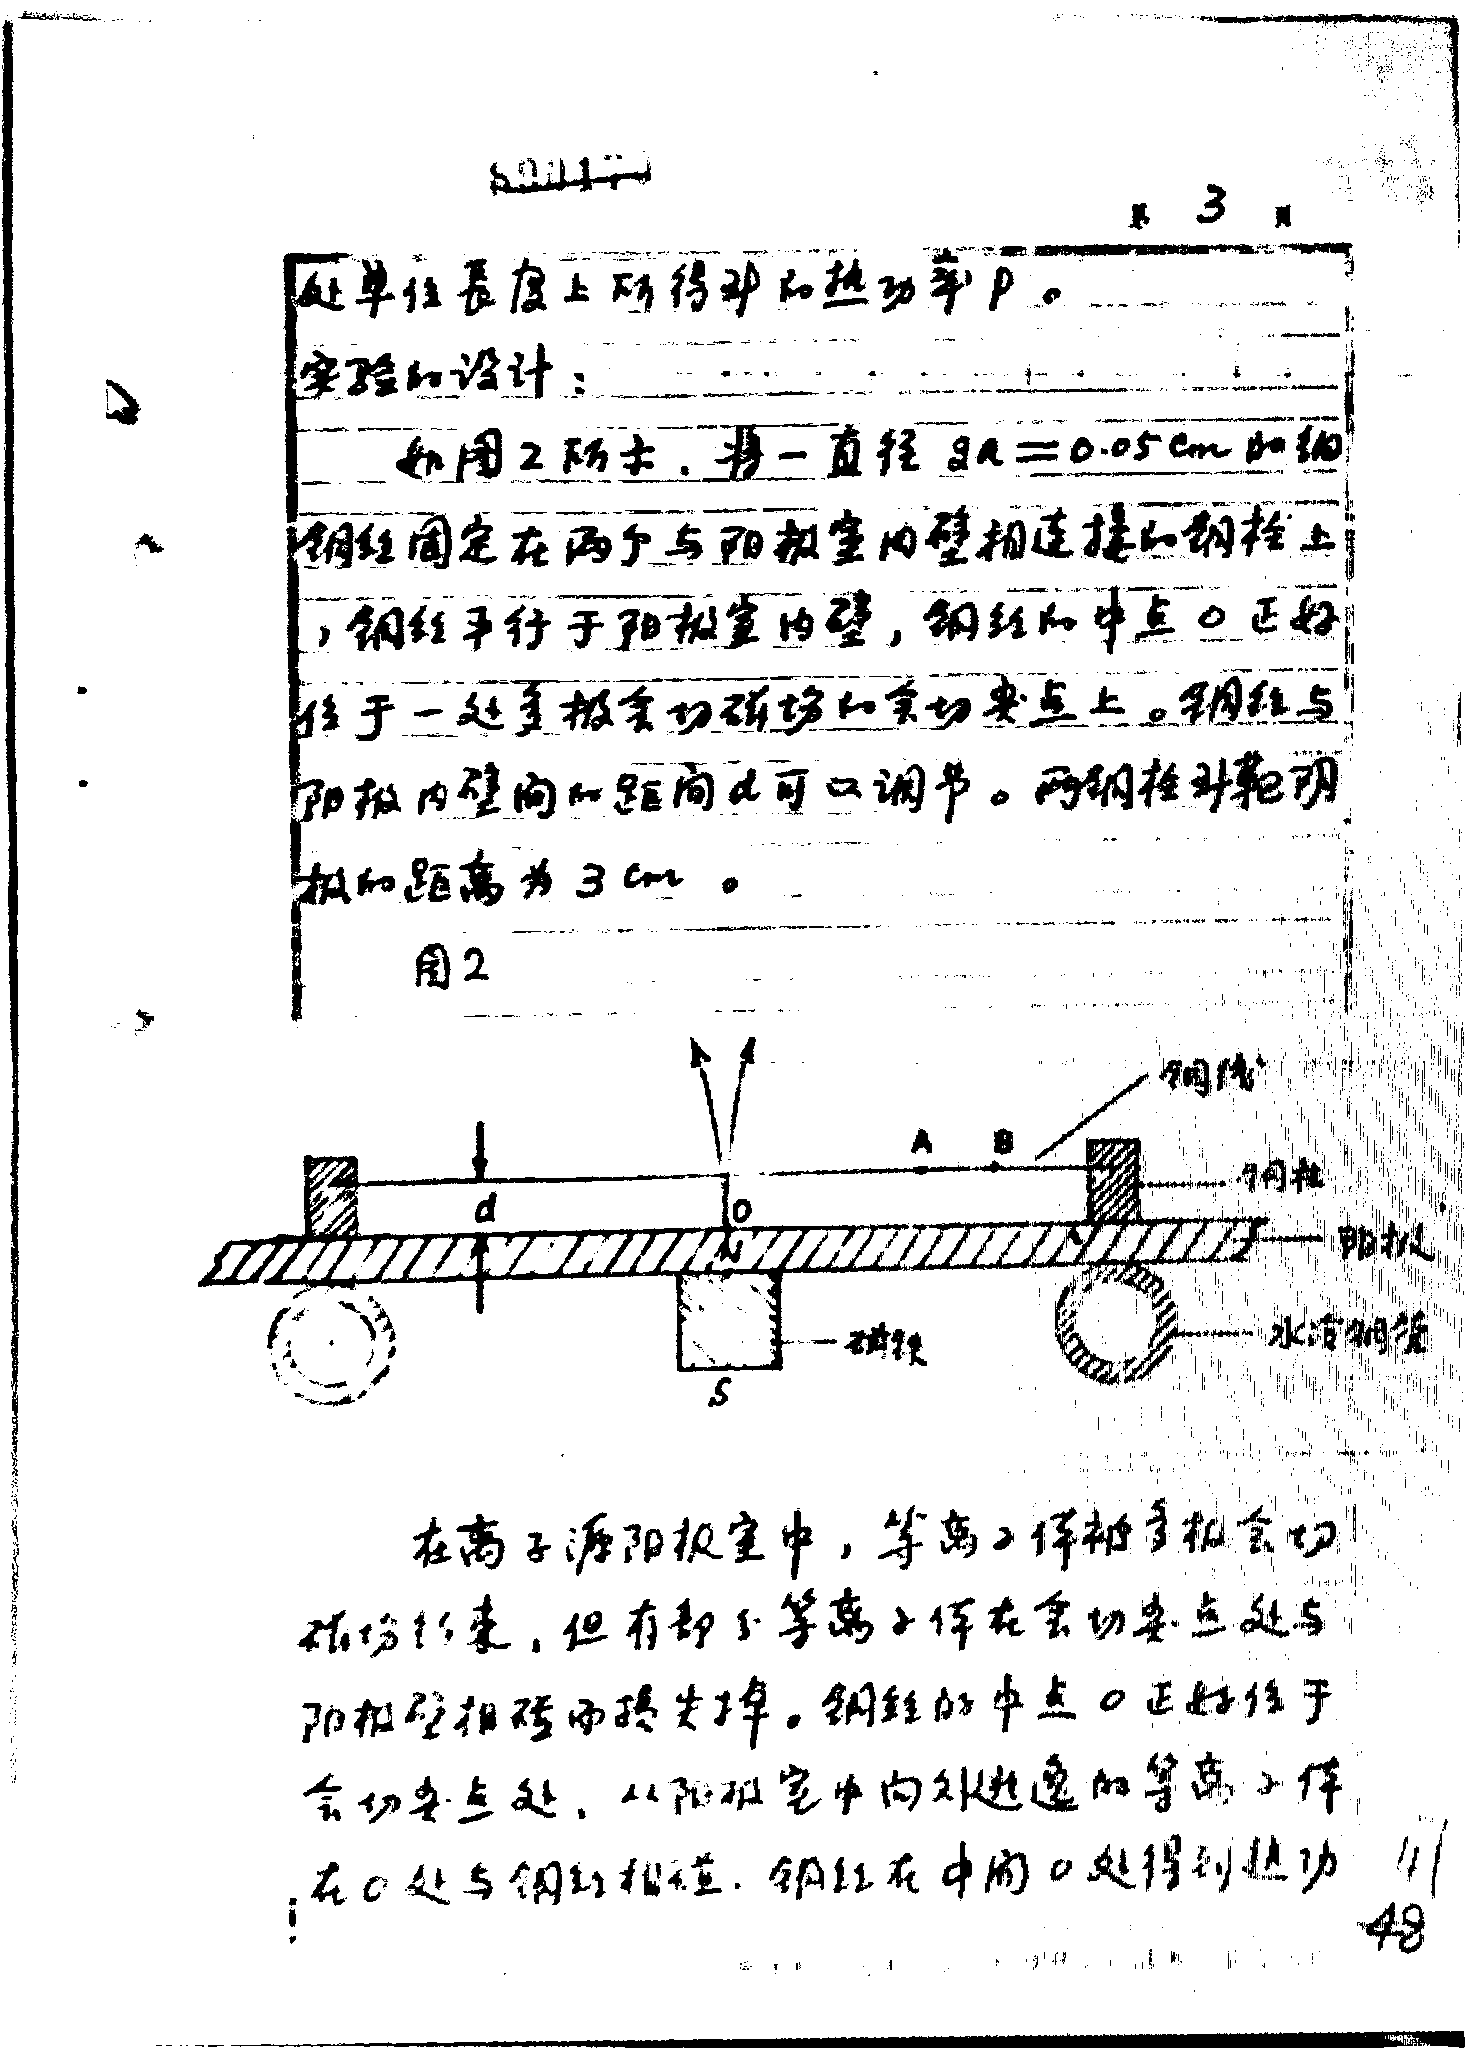 第 3 页
处单位長度上所得到的热功率P。
实验的设计：
如图2所示．将一直径2a=0.05cm的铜
铜丝固定在两个与阳极室内壁相连接的铜栓上
，铜丝平行于阳极室内壁，铜丝的中点O正好
位于一处多极会切磁场的会切尖点上。铜丝与
阳极内壁间的距间d可以调节。两铜栓对靶阴
极的距离为3cm。
图2
铜线
A B
铜柱
d O
阳极
N
磁铁
水冷铜管
S
在离子源阳极室中，等离子体被多极会切
磁场约束，但有部分等离子体在会切尖点处与
阳极壁相碰而损失掉。铜丝的中点O正好位于
会切尖点处．从阳极室中向外逃逸的等离子体
在O处与铜丝相碰．铜丝在中间O处得到热功
48